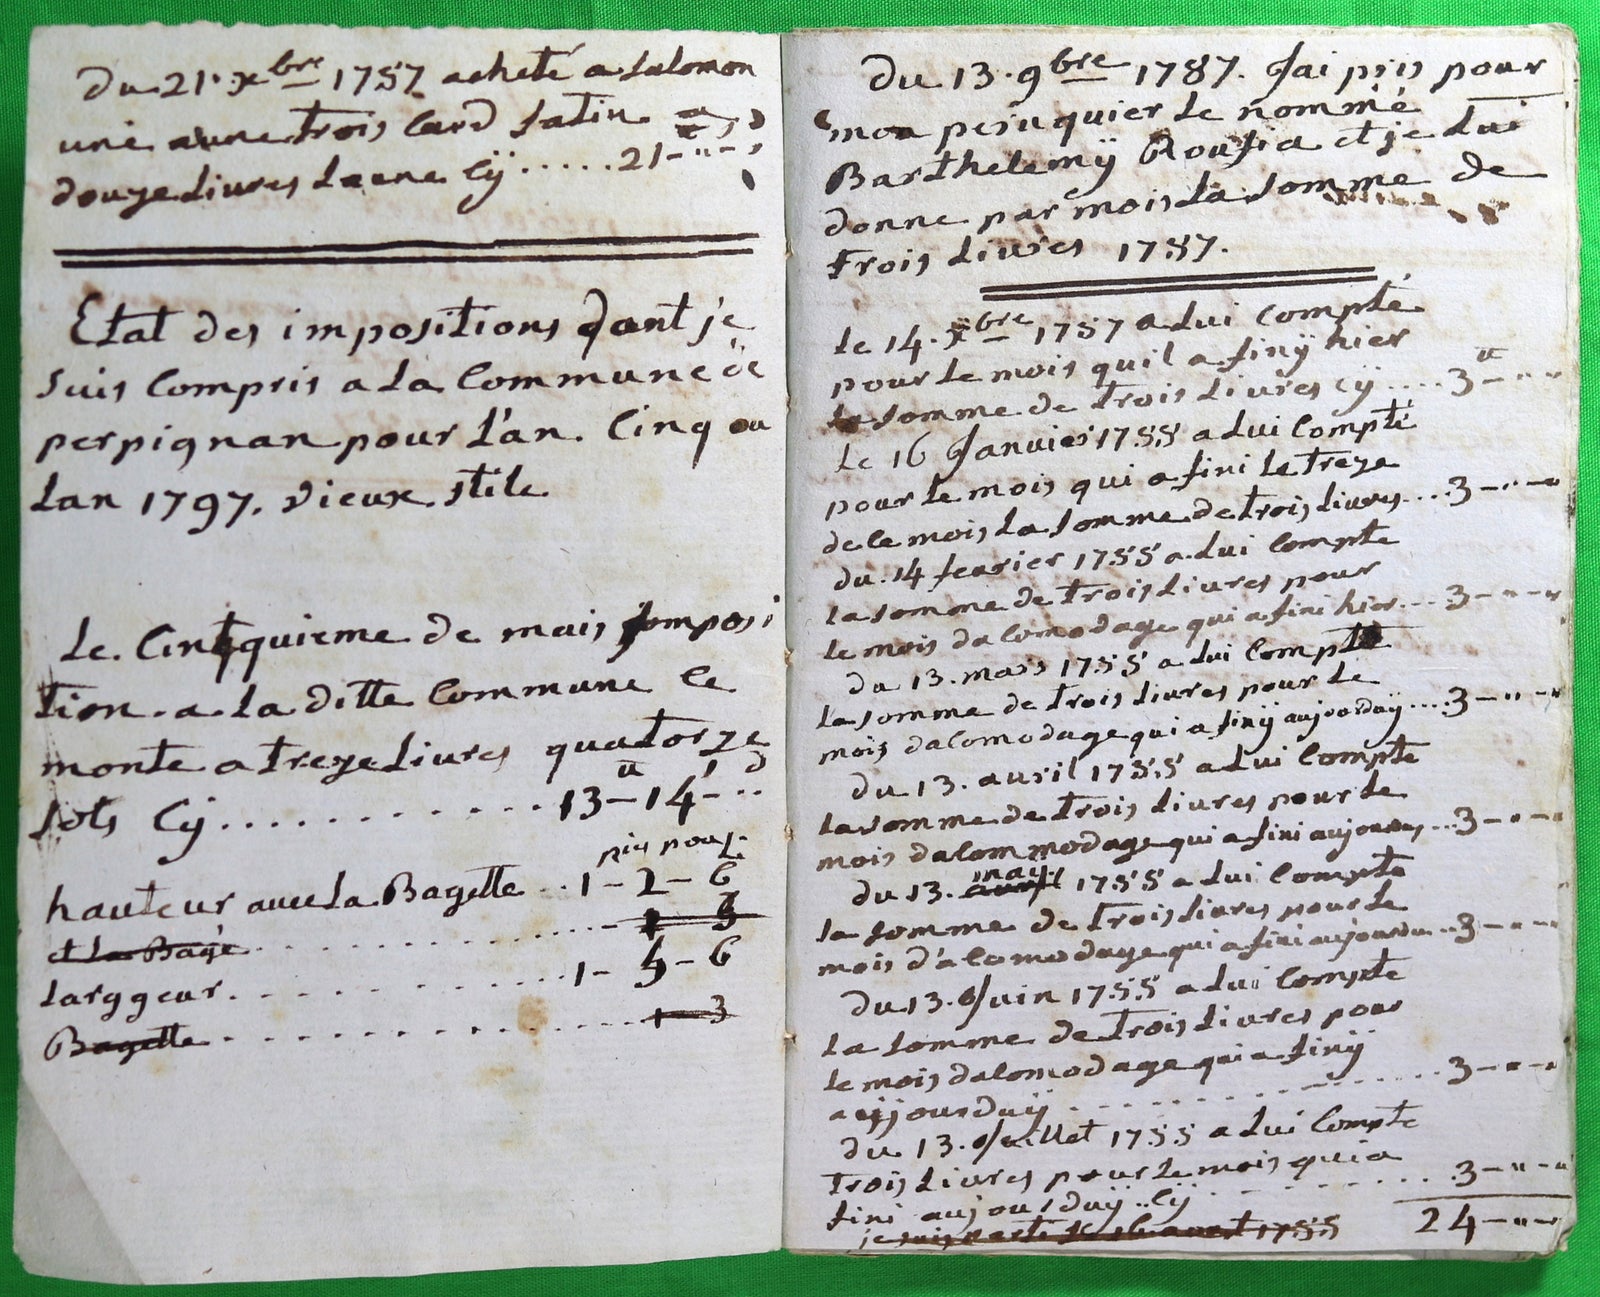 du 21. xbre 1787 acheté a Salomon
une aune trois card Satin
douze livres laune cÿ ..... 21-"-"
Etat des impositions dont je
suis compris a la Commune de
perpignan pour l'an. Cinq ou
lan 1797. vieux stile
Le. Cinquieme de mais jmposi
tion. a. la ditte Commune ce
monte a treze livres quatorze
sols Cÿ ........... 13-14-..
pies pous. L
hauteur avec la Bagette .. 1-2-6
et la Bage ............ 1 3
larggeur ............ 1-5-6
Bagette ............ 1 3
du 13. 9bre 1787. Jai pris pour
mon peruquier le nommé
Barthelemÿ Rousia et je lui
donne par mois la somme de
trois livres 1787.
Le 14. xbre 1787 a lui compté
pour le mois quil a finÿ hier
la somme de trois livres cÿ .... 3-"-"
Le 16 Janvier 1788 a lui Compté
pour le mois qui a fini le treze
de ce mois la somme de trois livres .... 3-"-"
du. 14 fevrier 1788 a lui Compte
la somme de trois livres pour
le mois dacomodage qui a fini hier .... 3-"-"
du 13. mars 1788 a lui Compté
la somme de trois livres pour le
mois dacomodage qui a finÿ aujourduÿ .... 3-"-"
du 13. avril 1788 a lui Compte
la somme de trois livres pour le
mois dacommodage qui a fini aujourdu ... 3-"-"
du 13. avril may 1788 a lui Compte
la somme de trois livres pour le
mois d'acomodage qui a fini aujourdu .. 3-"-"
du 13. Juin 1788 a lui Compte
la somme de trois livres pour
le mois dacomodage qui a finÿ
aujjourduÿ ............ 3-"-"
du 13. Juillet 1788 a lui Compte
trois livres pour le mois qui a
fini aujourduÿ .. Cÿ ......... 3-"-"
je suis parti le 16 aout 1788 24-"-"